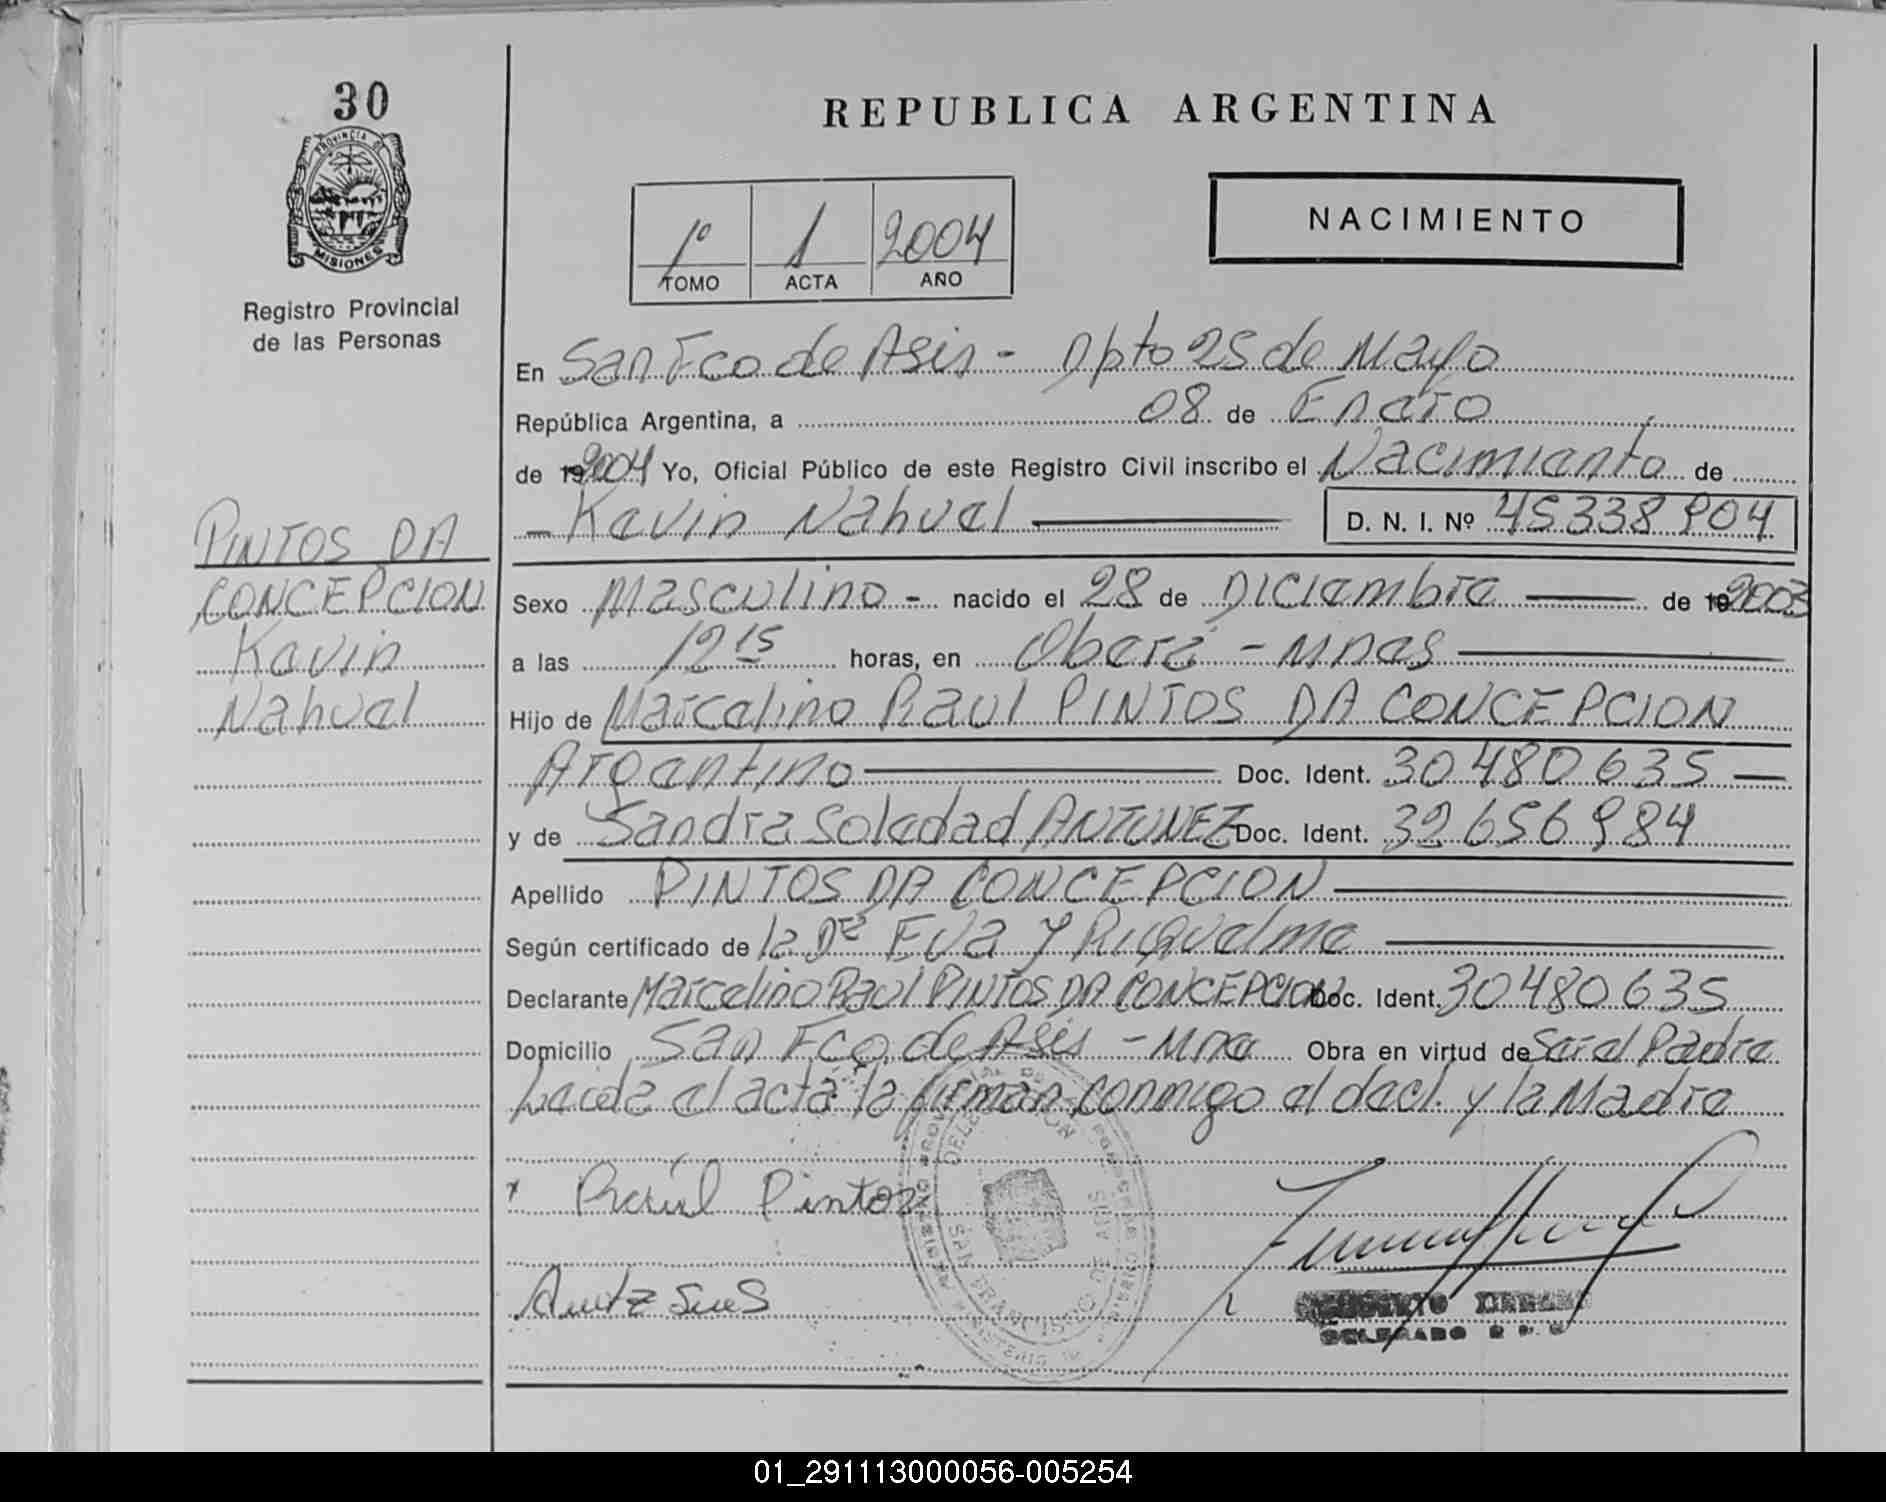 30
PROVINCIA DE
MISIONES
Registro Provincial
de las Personas
REPUBLICA ARGENTINA
1º 1 2004
TOMO ACTA AÑO
NACIMIENTO
En San Fco de Asis - Dpto 25 de Mayo
República Argentina, a 08 de Enero
de 2004 Yo, Oficial Público de este Registro Civil inscribo el Nacimiento de
- Kevin Nahuel D. N. I. Nº 45338904
PINTOS DA
CONCEPCION
Kevin
Nahuel
Sexo Masculino - nacido el 28 de Diciembre de 2003
a las 12 15 horas, en Oberá - Mnes
Hijo de Marcelino Raul PINTOS DA CONCEPCION
Argentino Doc. Ident. 30480635
y de Sandra Soledad ANTUNEZ Doc. Ident. 32656984
Apellido PINTOS DA CONCEPCION
Según certificado de la Dra Eva Y Riquelme
Declarante Marcelino Raul PINTOS DA CONCEPCION Doc. Ident. 30480635
Domicilio San Fco de Asis - Mnes Obra en virtud de Ser el Padre
Leida el acta la firman conmigo el decl. y la Madre
Raúl Pintos
DELEGACION
SAN FRANCISCO DE ASIS
DELEGADO R P
01_291113000056-005254